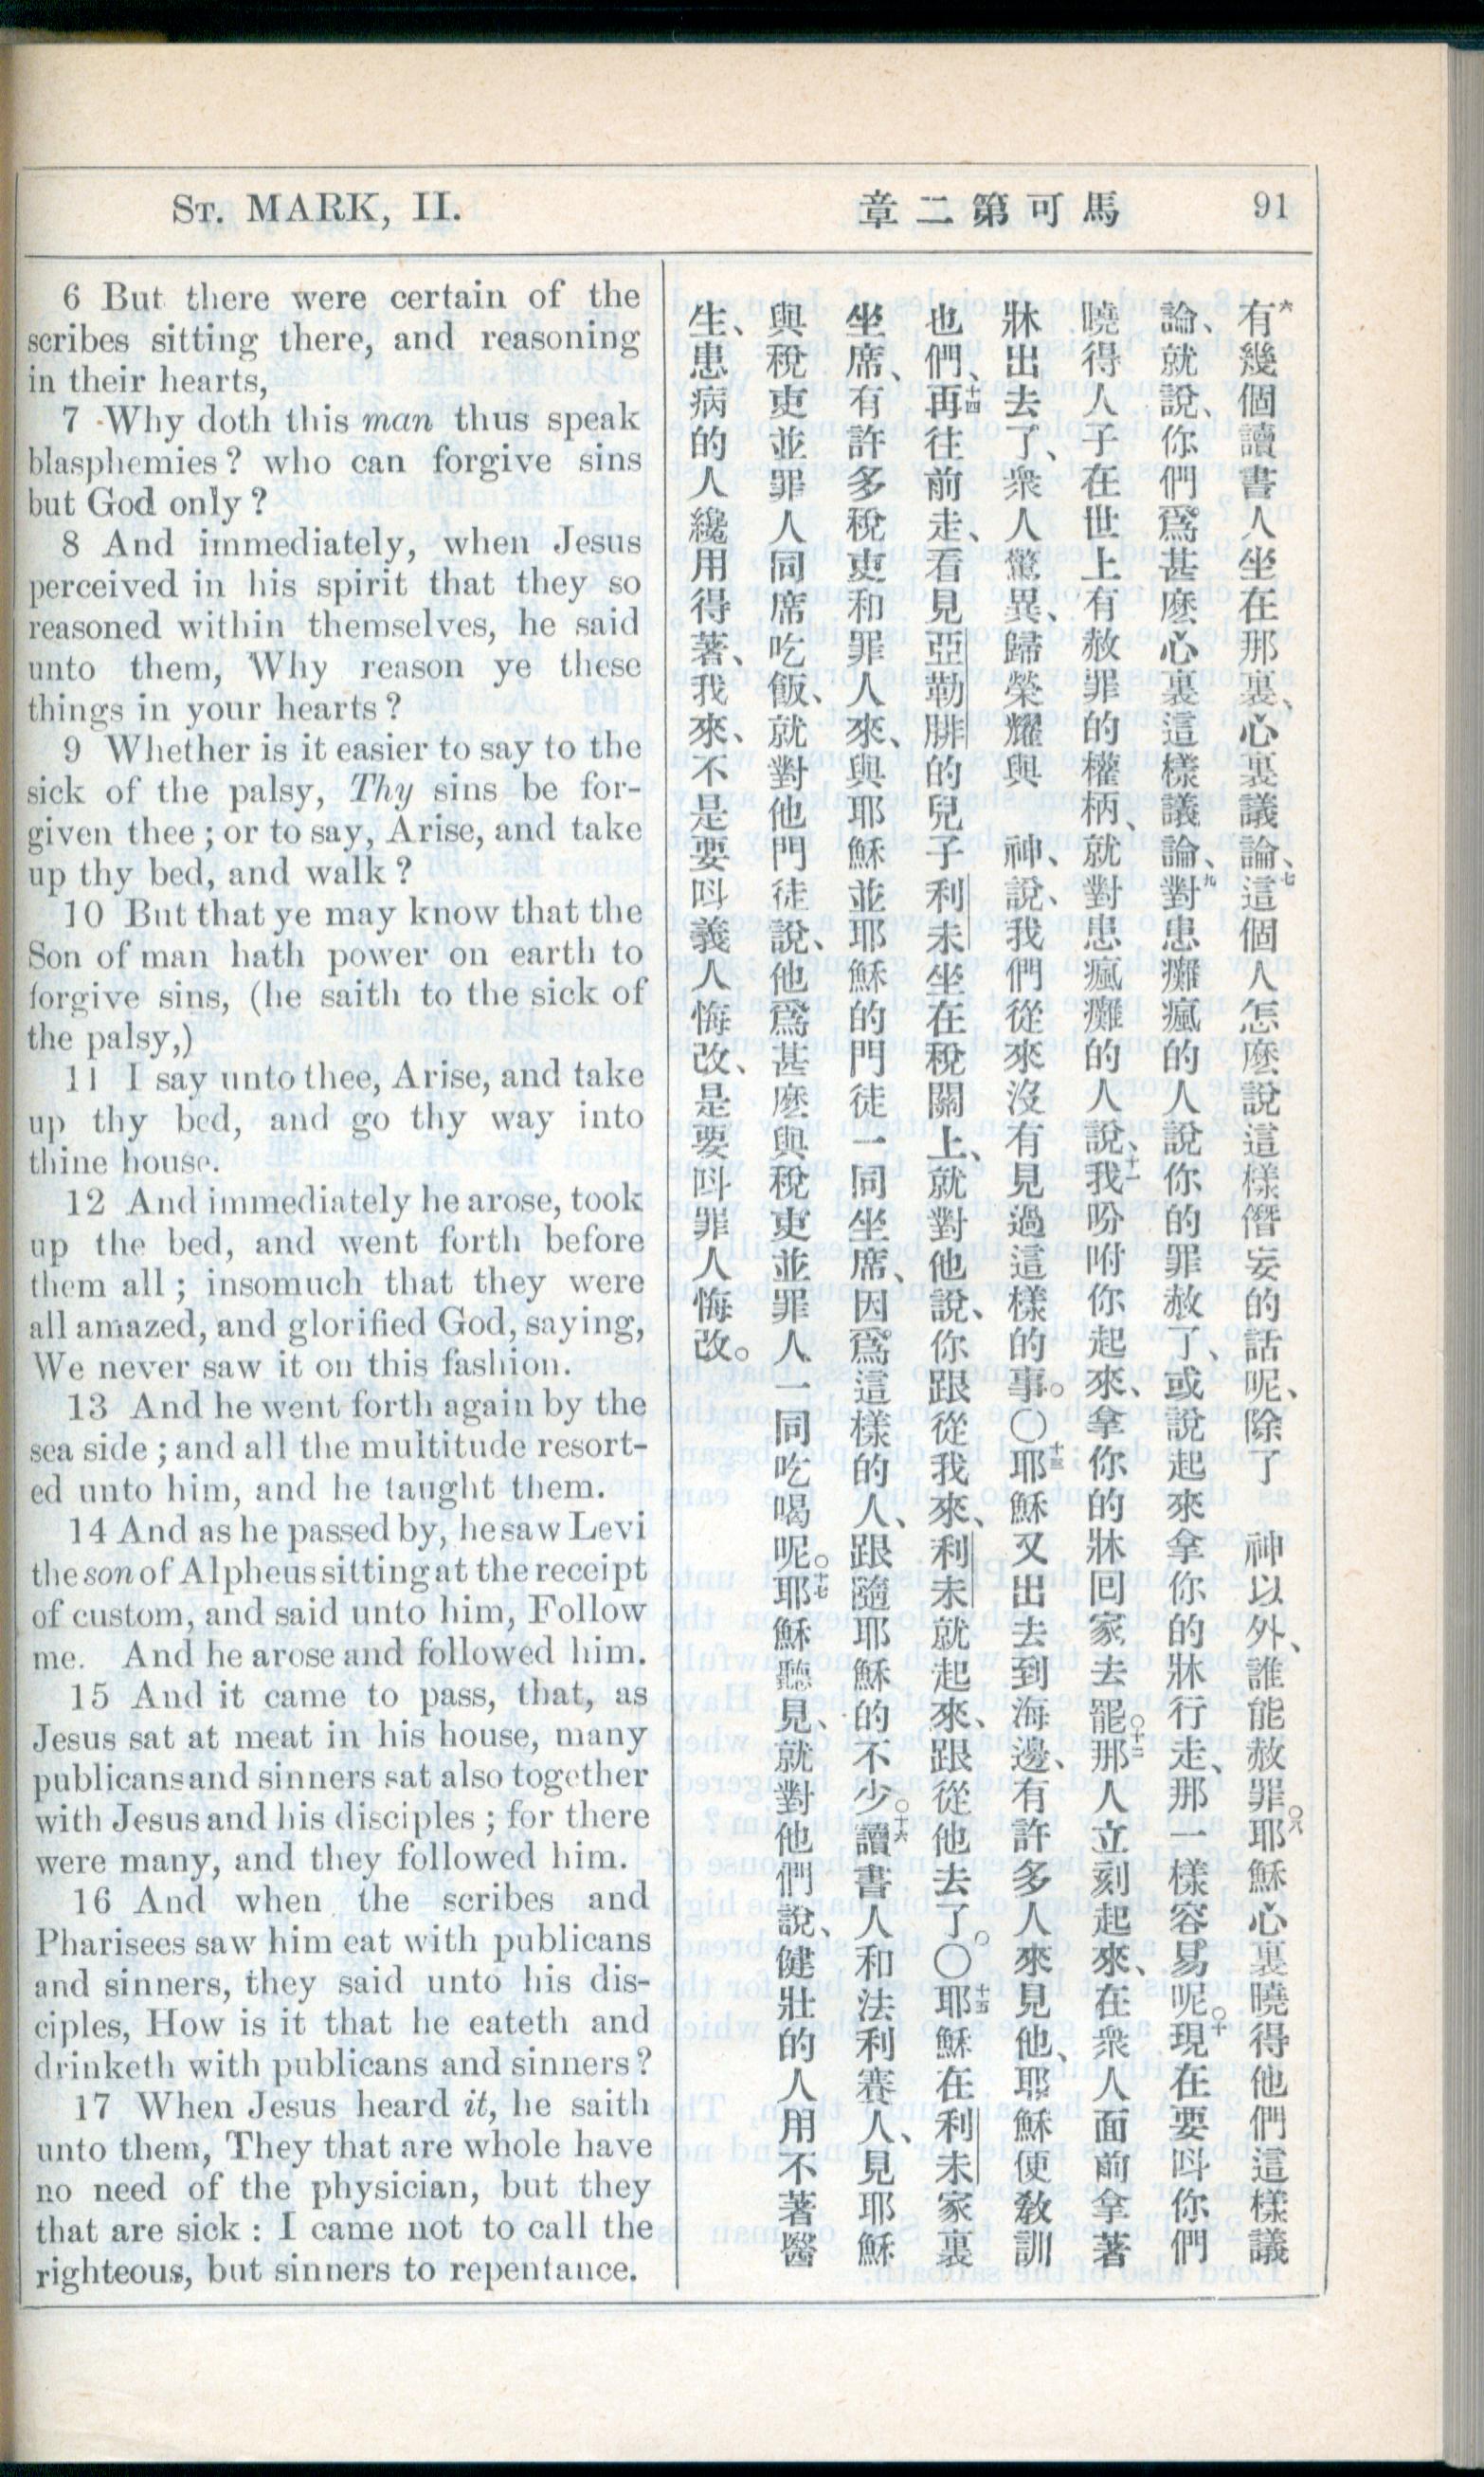 ST. MARK, II.
章二第可馬
91
6 But there were certain of the
scribes sitting there, and reasoning
in their hearts,
7 Why doth this man thus speak
blasphemies? who can forgive sins
but God only?
8 And immediately, when Jesus
perceived in his spirit that they so
reasoned within themselves, he said
unto them, Why reason ye these
things in your hearts?
9 Whether is it easier to say to the
sick of the palsy, Thy sins be for-
given thee; or to say, Arise, and take
up thy bed, and walk?
10 But that ye may know that the
Son of man hath power on earth to
forgive sins, (he saith to the sick of
the palsy,)
11 I say unto thee, Arise, and take
up thy bed, and go thy way into
thine house.
12 And immediately he arose, took
up the bed, and went forth before
them all; insomuch that they were
all amazed, and glorified God, saying,
We never saw it on this fashion.
13 And he went forth again by the
sea side; and all the multitude resort-
ed unto him, and he taught them.
14 And as he passed by, he saw Levi
the son of Alpheus sitting at the receipt
of custom, and said unto him, Follow
me. And he arose and followed him.
15 And it came to pass, that, as
Jesus sat at meat in his house, many
publicans and sinners sat also together
with Jesus and his disciples; for there
were many, and they followed him.
16 And when the scribes and
Pharisees saw him eat with publicans
and sinners, they said unto his dis-
ciples, How is it that he eateth and
drinketh with publicans and sinners?
17 When Jesus heard it, he saith
unto them, They that are whole have
no need of the physician, but they
that are sick: I came not to call the
righteous, but sinners to repentance.
六有幾個讀書人坐在那裏、心裏議論、七這個人怎麽說這樣僭妄的話呢、除了 神以外、誰能赦罪。八耶穌心裏曉得他們這樣議
論、就說、你們爲甚麽心裏這樣議論、九對患癱瘋的人說你的罪赦了、或說起來拿你的牀行走、那一樣容易呢。十現在要呌你們
曉得人子在世上有赦罪的權柄、就對患瘋癱的人說、十一我吩咐你起來、拿你的牀回家去罷。十二那人立刻起來、在衆人面前拿著
牀出去了、衆人驚異、歸榮耀與 神、說、我們從來沒有見過這樣的事。〇十三耶穌又出去到海邊、有許多人來見他、耶穌便敎訓
他們、十四再往前走、看見亞勒腓的兒子利未坐在稅關上、就對他說、你跟從我來、利未就起來、跟從他去了。〇十五耶穌在利未家裏
坐席、有許多稅吏和罪人來、與耶穌並耶穌的門徒一同坐席、因爲這樣的人、跟隨耶穌的不少。十六讀書人和法利賽人、見耶穌
與稅吏並罪人同席吃飯、就對他門徒說、他爲甚麽與稅吏並罪人一同吃喝呢。十七耶穌聽見、就對他們說、健壯的人用不著醫
生、患病的人纔用得著、我來、不是要呌義人悔改、是要呌罪人悔改。